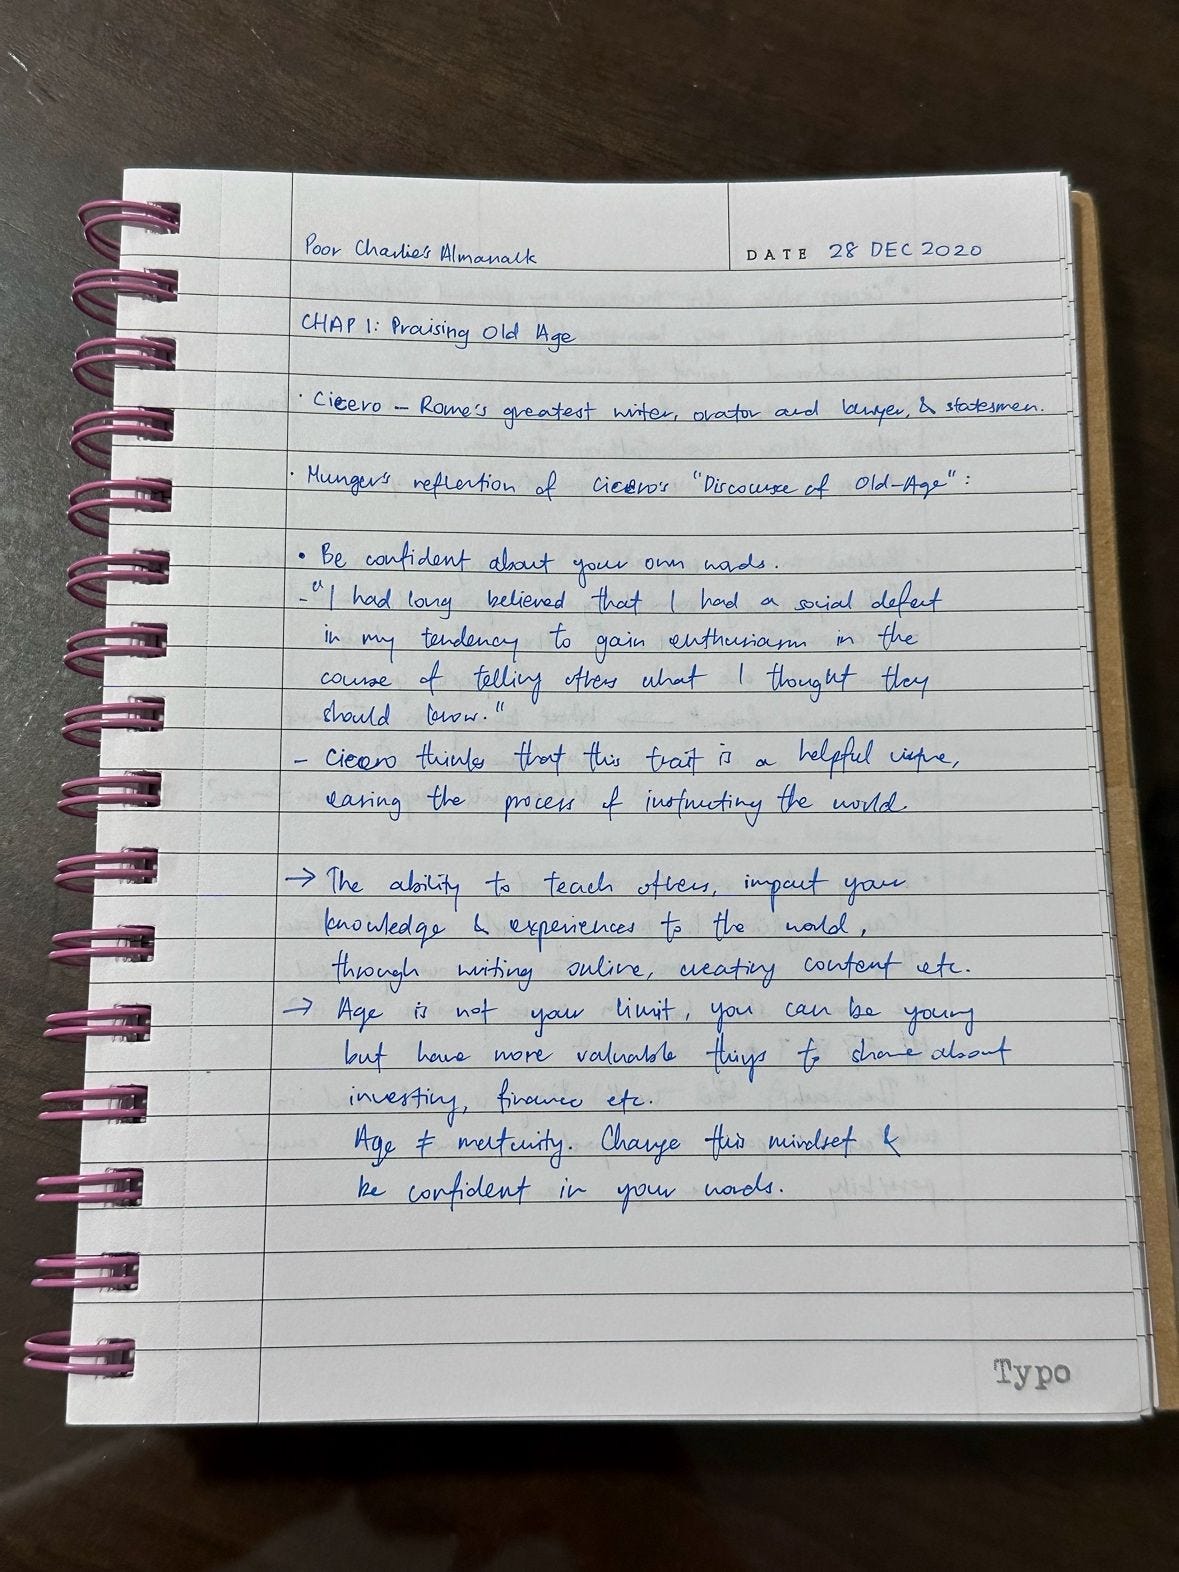 Poor Charlie's Almanack
DATE 28 DEC 2020
CHAP 1: Praising Old Age
· Cicero – Rome's greatest writer, orator and lawyer, & statesmen.
· Munger's reflection of Cicero's "Discourse of Old-Age":
• Be confident about your own words.
- "I had long believed that I had a social defect
in my tendency to gain enthusiasm in the
course of telling others what I thought they
should know."
- Cicero thinks that this trait is a helpful virtue,
easing the process of instructing the world.
→ The ability to teach others, impart your
knowledge & experiences to the world,
through writing online, creating content etc.
→ Age is not your limit, you can be young
but have more valuable things to share about
investing, finance etc.
Age ≠ maturity. Change this mindset &
be confident in your words.
Typo